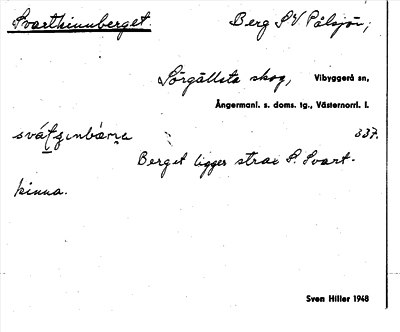 Svartkinnberget. Berg SV Pålsjön,
Sörgällsta skog, Vibyggerå sn,
Ångermanl. s. doms. tg., Västernorrl. l.
337.
Berget ligger strax S. Svart-
kinna.
Sven Hiller 1948